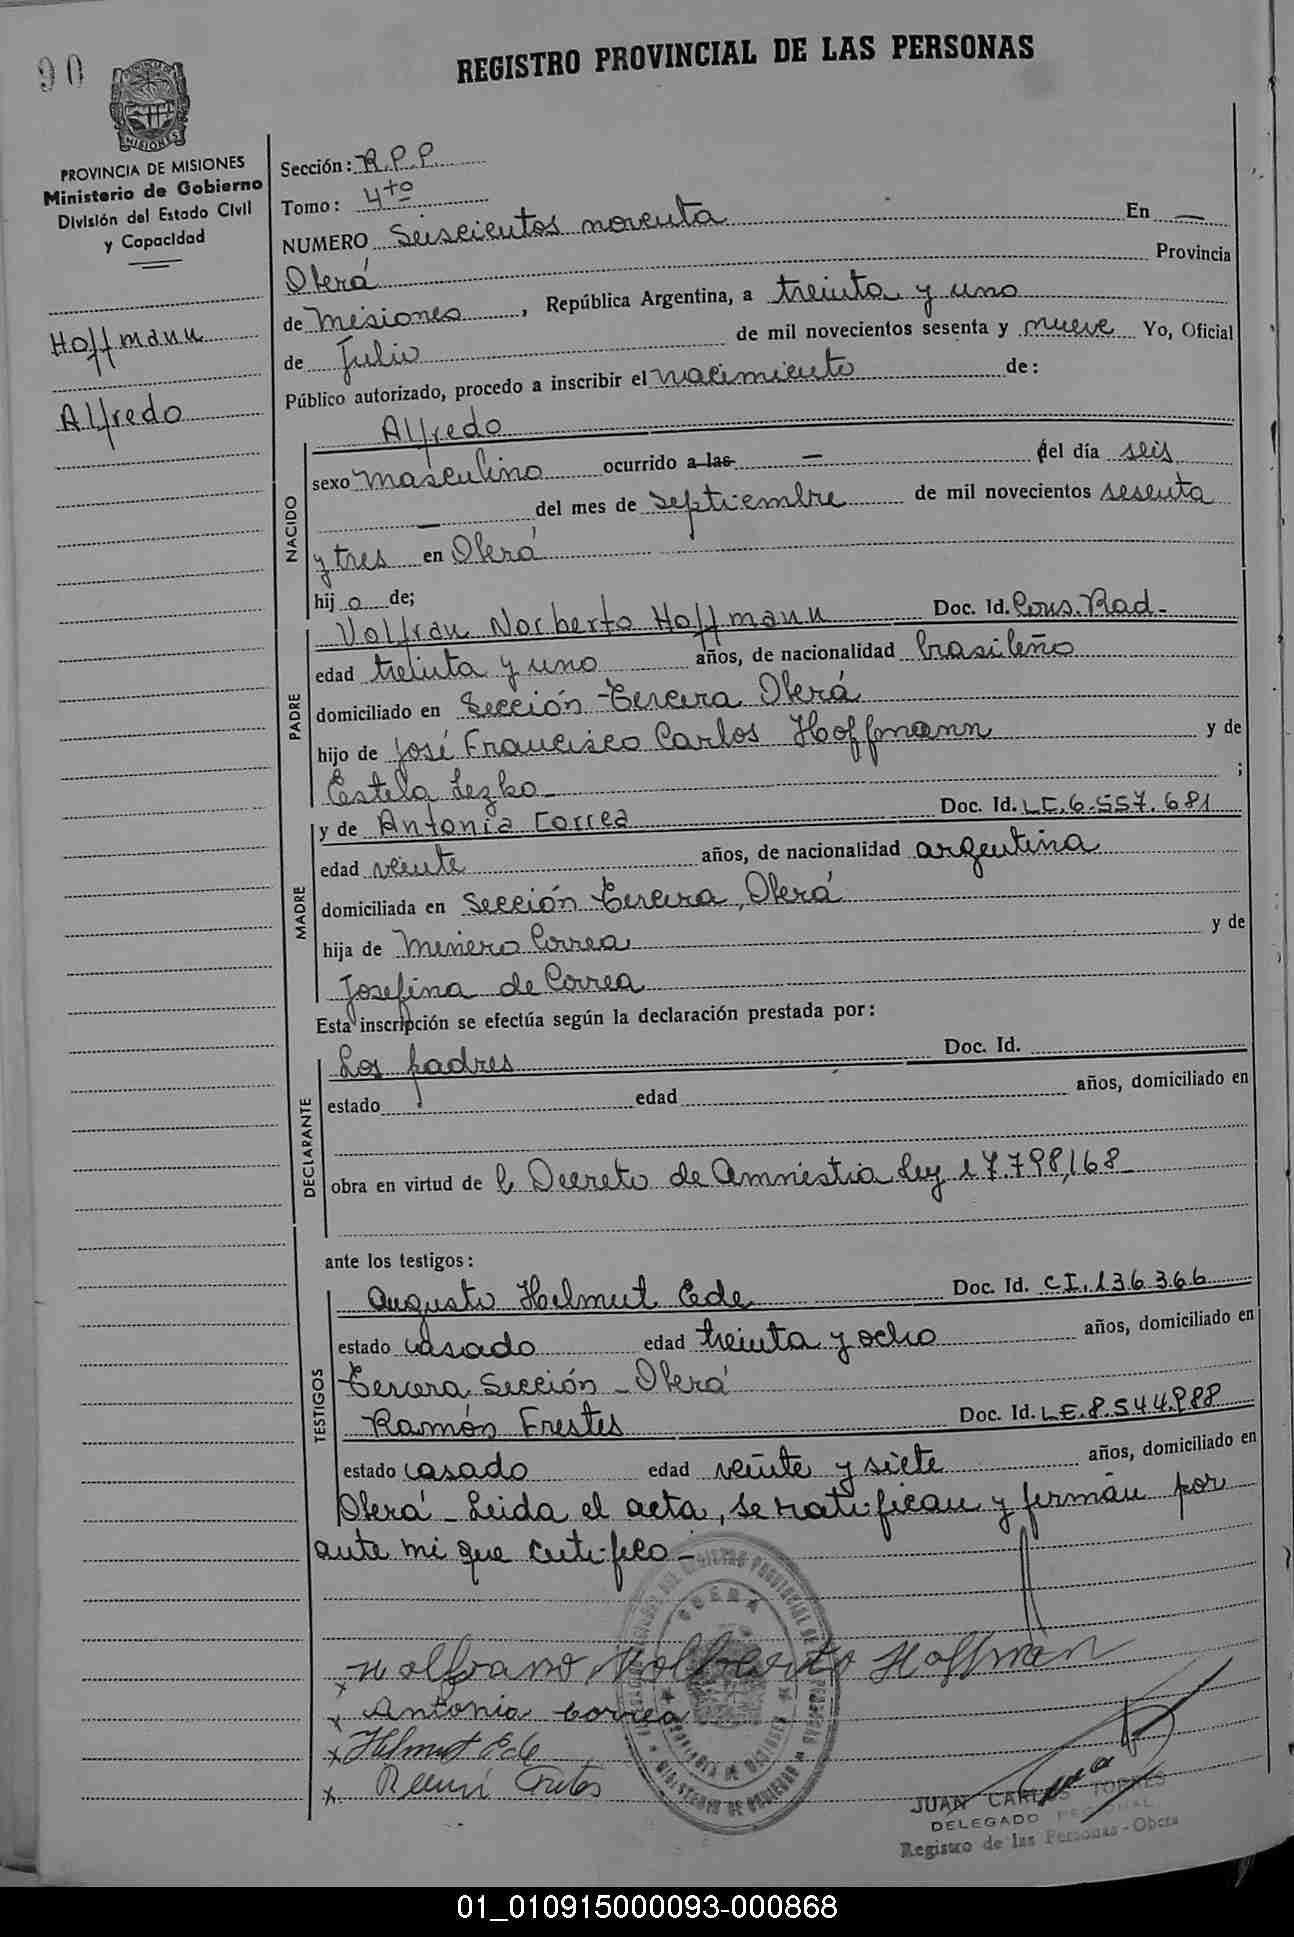 90
REGISTRO PROVINCIAL DE LAS PERSONAS
MISIONES
PROVINCIA DE MISIONES
Ministerio de Gobierno
División del Estado Civil
y Capacidad
Hoffmann
Alfredo
Sección: R.P.P.
Tomo: 4to
NUMERO Seiscientos noventa En —
Oberá Provincia
de Misiones, República Argentina, a treinta y uno
de Julio de mil novecientos sesenta y nueve Yo, Oficial
Público autorizado, procedo a inscribir el nacimiento de:
NACIDO
Alfredo
sexo masculino ocurrido a las — del día seis
— del mes de septiembre de mil novecientos sesenta
y tres en Oberá
hij o de;
PADRE
Volfran Norberto Hoffmann Doc. Id. Cons. Rad-
edad treinta y uno años, de nacionalidad brasileño
domiciliado en Sección Tercera Oberá
hijo de José Francisco Carlos Hoffmann y de
Estela Lezko- ;
MADRE
y de Antonia Correa Doc. Id. LC.6.557.681
edad veinte años, de nacionalidad argentina
domiciliada en Sección Tercera, Oberá
hija de Miniero Correa y de
Josefina de Correa
Esta inscripción se efectúa según la declaración prestada por:
DECLARANTE
Los padres Doc. Id.
estado edad años, domiciliado en
obra en virtud de Decreto de Amnistia Ley 17.798/68-
ante los testigos:
TESTIGOS
Augusto Helmut Ede Doc. Id. CI.136.366
estado casado edad treinta y ocho años, domiciliado en
Tercera Sección - Oberá
Ramón Frestes Doc. Id. LE.8.544.988
estado casado edad veinte y siete años, domiciliado en
Oberá - Leida el acta, se ratifican y firman por
ante mi que certifico-
x Wolframo Nolberto Hoffman
x Antonia Correa
x Helmut Ede
x
JUAN CARLOS TORRES
DELEGADO REGIONAL
Registro de las Personas - Obera
01_010915000093-000868